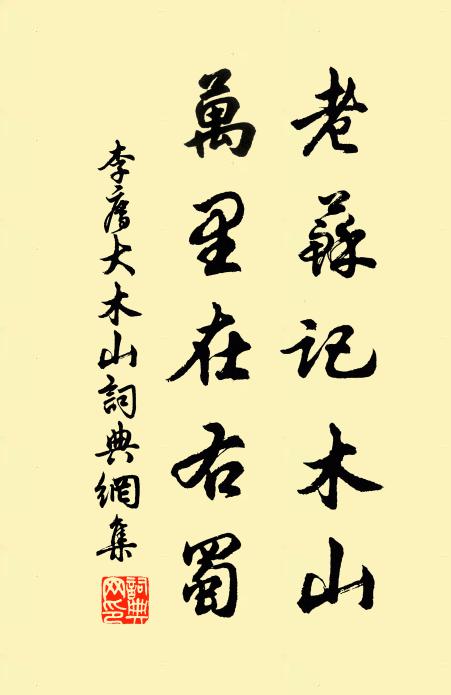 老蘇記木山
萬里在右蜀
李廌大木山詞典網集
詞典網印